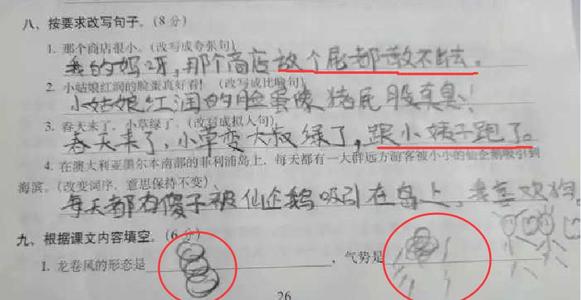 八、按要求改写句子。(8分)
1. 那个商店很小。(改写成夸张句)
我的妈呀,那个商店放个屁都散不去。
2. 小姑娘红润的脸蛋真好看!(改写成比喻句)
小姑娘红润的脸蛋像猪屁股真臭!
3. 春天来了,小草绿了。(改写成拟人句)
春天来了,小草变大叔绿了,跟小姨子跑了。
4. 在澳大利亚墨尔本南部的菲利浦岛上,每天都有一大群远方游客被小小的仙企鹅吸引到
海滨。(改变词序,意思保持不变)
每天都有傻子被仙企鹅吸引在岛上,我喜欢狗
九、根据课文内容填空。(6分)
1. 龙卷风的形态是 ,气势是
26